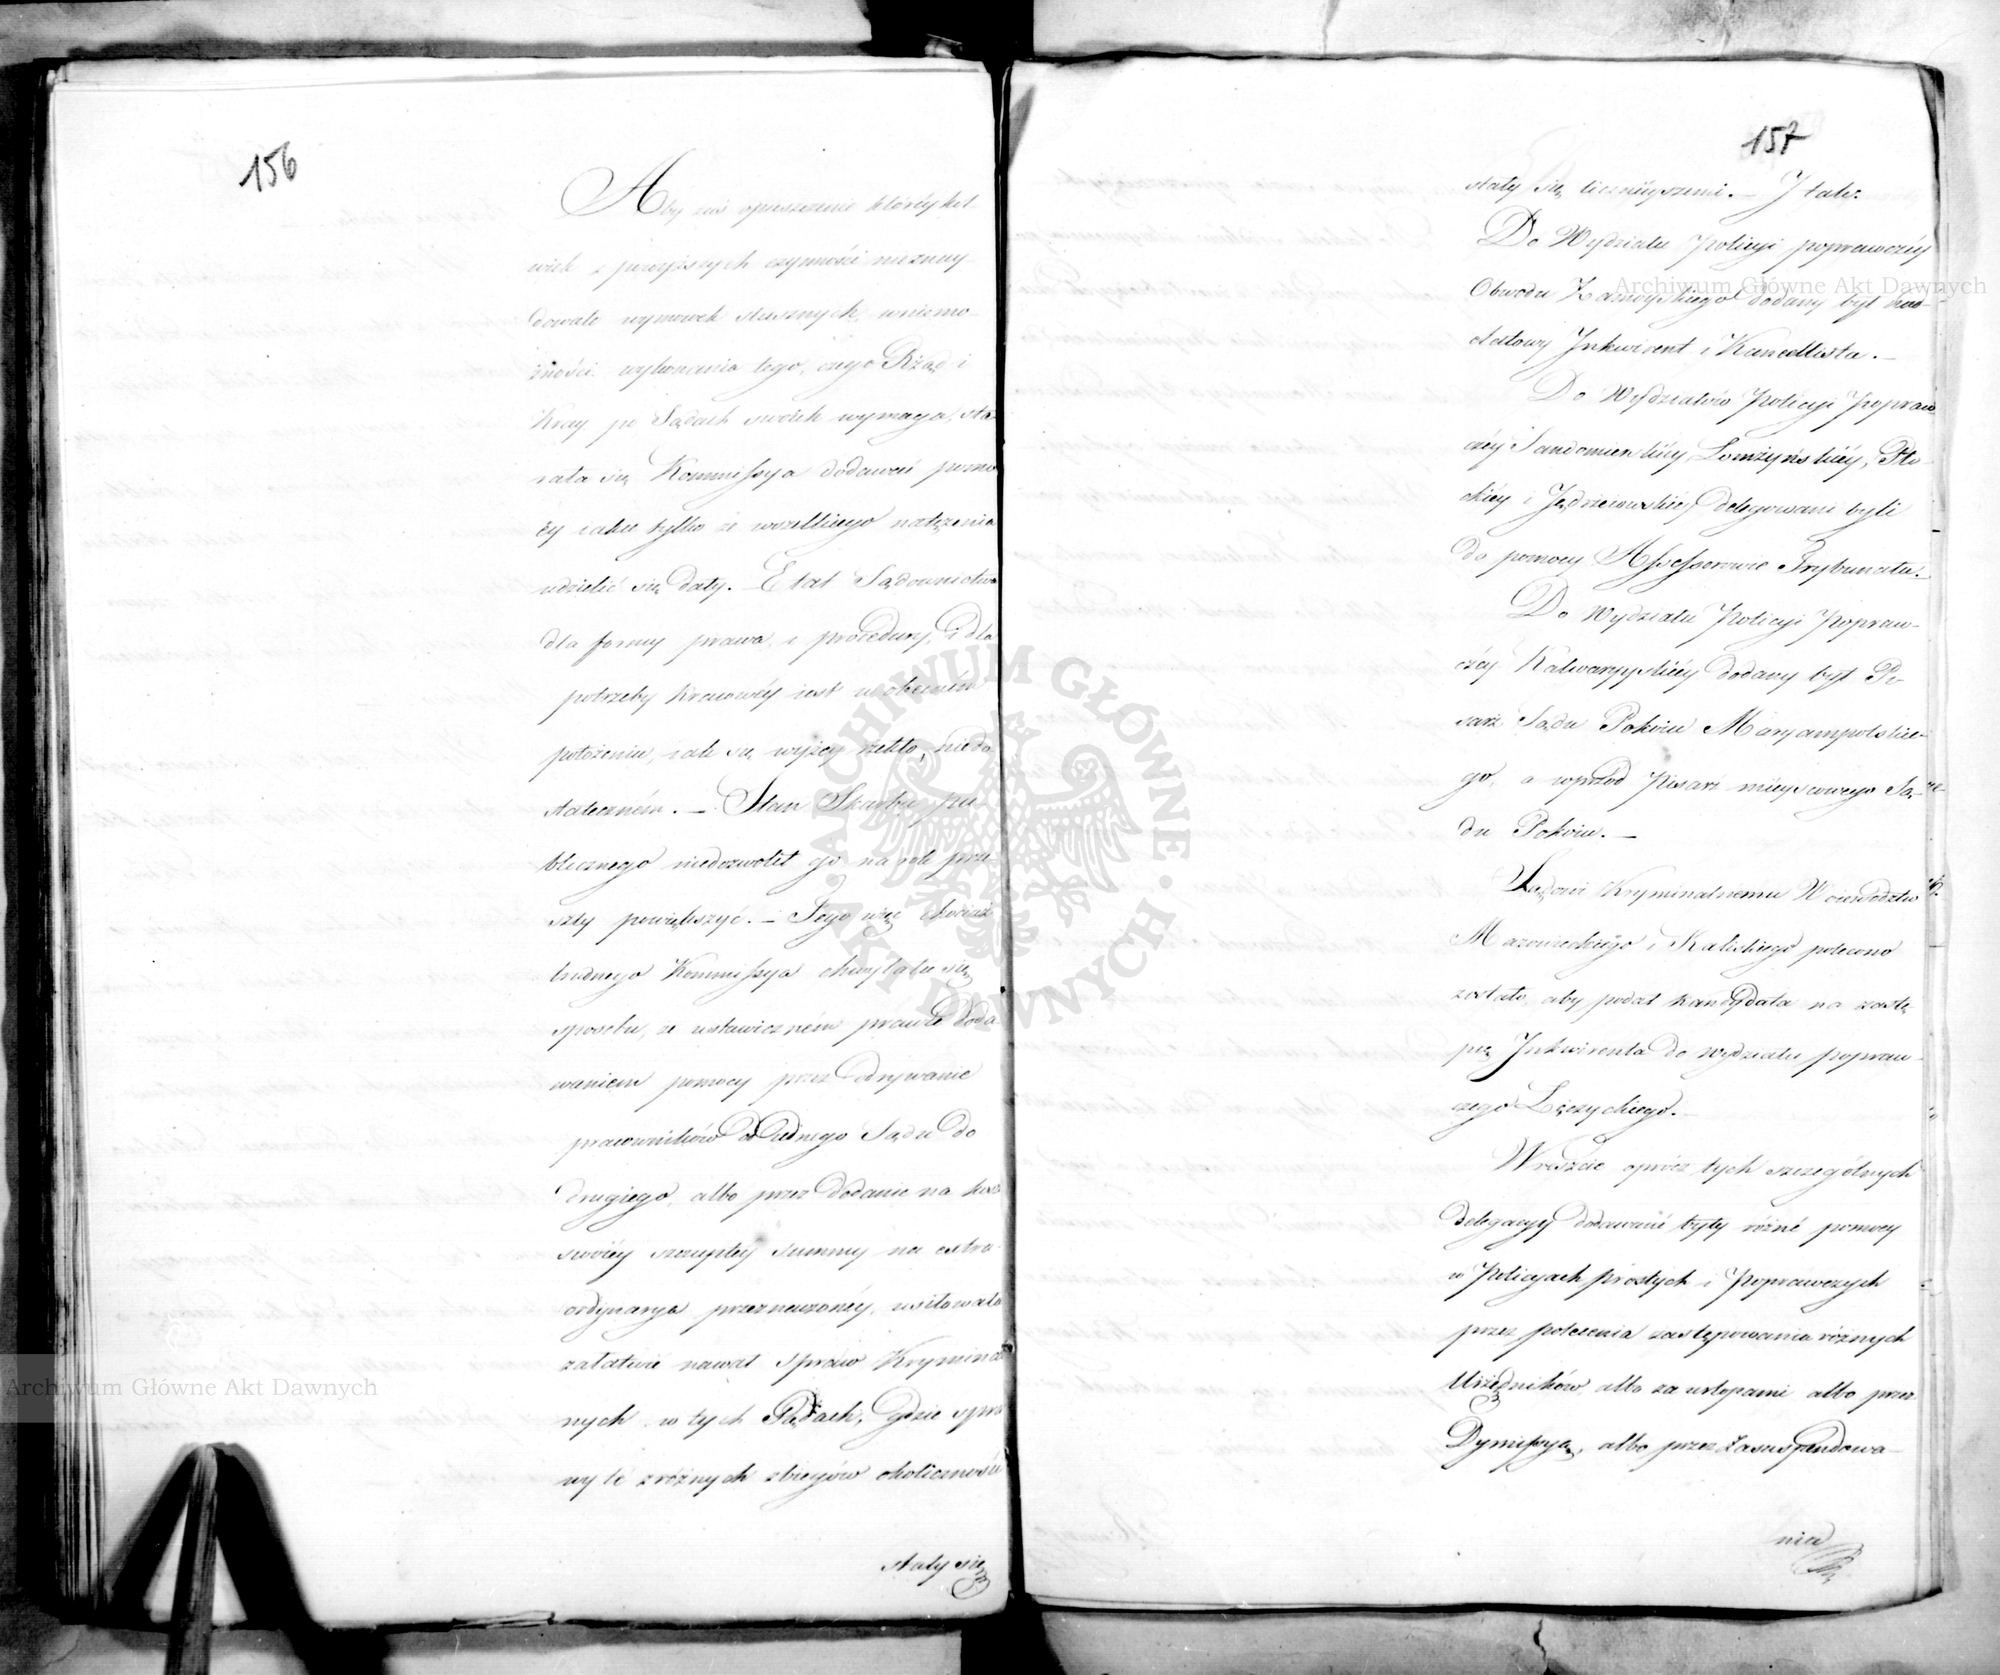 156
Aby zaś opuszczenie któréykol
wiek z powyższych czynności nieznay
dowało wymowek słusznych, wniemo-
żności wykonania tego, czego Rząd i
Kray po Sądach swoich wymaga, sta
rała się Kommissya dodawać pomo
cy iakie tylko ze wszelkiego natężenia
udzielić się dały. — Etat Sądownictwa
dla formy prawa, i procedury, i dla
potrzeby kraiowéy iest w obecném
położeniu, iak się wyżéy rzekło, niedo
stateczném. — Stan Skarbu pu-
blicznego niedozwolił go na rok prze
szły powiększyć. — Tego więc chociaż
trudnego Kommissya chwytała się
sposobu, że ustawiczném prawie doda-
waniem pomocy przez odrywanie
pracowników od iednego Sądu do
drugiego, albo przez dodanie na koszt
swoiéy szczupłey summy na extra-
ordynarya przeznaczonéy, usiłowała
załatwić nawał spraw Kryminal
nych w tych Sądach, gdzie spra
wy té z różnych zbiegów okoliczności
stały się
157
stały się licznieyszemi. — I tak:
Do Wydziału Policyi poprawczéy
Obwodu Zamoyskiego dodany był nad-
etatowy Inkwirent i Kancellista. —
Do Wydziałów Policyi Popraw
czéy Sandomierskiéy, Łomżyńskiéy, Pło-
ckiéy i Jędrzeiowskiéy delegowani byli
do pomocy Assessorowie Trybunału. —
Do Wydziału Policyi Popraw-
czéy Kalwaryyskiéy dodany był Pi-
sarz Sądu Pokoiu Maryampolskie-
go, a wprzód Pisarz mieyscowego Są-
du Pokoiu. —
Sądowi Kryminalnemu Woiewództw
Mazowieckiego i Kaliskiego polecono
zostało, aby podał kandydata na zastę
pcę Inkwirenta do wydziału popraw-
czego Łęczyckiego. —
Wreszcie oprócz tych szczególnych
delegacyy dodawané były różné pomocy
w Policyach prostych i Poprawczych
przez polecenia zastępowania różnych
Urzędników albo za urlopami albo przez
Dymissyą, albo przez zasuspendowa-
nia
Archiwum Główne Akt Dawnych
Archiwum Główne Akt Dawnych
ARCHIWUM GŁÓWNE · AKT DAWNYCH ·